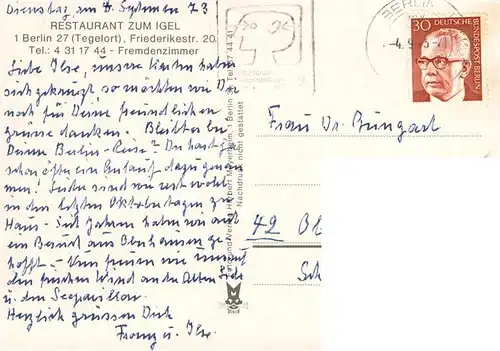 Dienstag, am 4. September 73
RESTAURANT ZUM IGEL
1 Berlin 27 (Tegelort), Friederikestr. 20
Tel.: 4 31 17 44 - Fremdenzimmer
Liebe Ilse, unsere Karten haben
sich gekreuzt so möchten wir Dir
noch für Deine freundlichen
Grüsse danken. Bleibt es bei
Deiner Berlin-Reise? Du hast ja
schon öfter ein Anlauf dazu genom
men! Leider sind wir erst wohl
in den letzten Oktobertagen zu
Haus - Seit Jahren haben wir auf
ein Besuch aus Oberhausen ge
hofft. - Nun freuen wir uns auf
den frischen Wind an der Alten Liebe
u. den Seepavillon.
Herzlich grüssen Dich
Franz u. Ilse.
Nachdruck nicht gestattet
BERLIN
30
DEUTSCHE
BUNDESPOST BERLIN
Frau Dr. Bungart
42 Ob
Sch